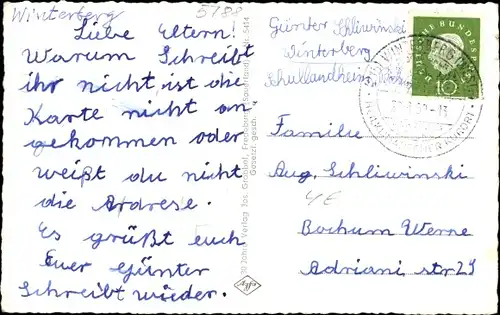 Winterberg
5788
Liebe Eltern!
Warum Schreibt
ihr nicht, ist die
Karte nicht an
gekommen oder
weißt du nicht
die Adrese.
Es grüßt euch
Euer Günter
Schreibt wieder.
30 Jahre Verlag Jos. Grobbel, Fredeburg
Gesetzl. gesch.
Agfa
Günter Schliwinski
Winterberg
Schullandheim
Familie
Aug. Schliwinski
Bochum Werne
Adriani str 29
DEUTSCHE BUNDESPOST
10
WINTERBERG